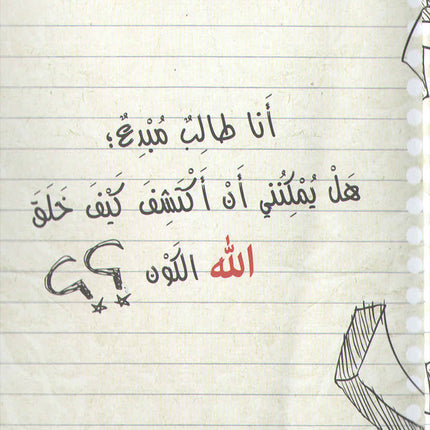 أَنا طالِبٌ مُبْدِعٌ؛
هَلْ يُمْكِنُني أَنْ أَكْتَشِفَ كَيْفَ خَلَقَ
الله الكَوْن ؟؟